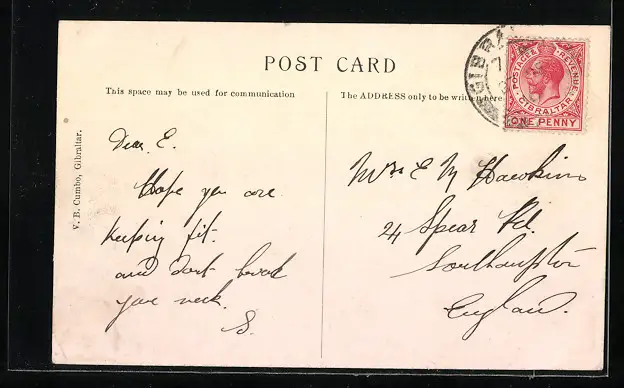 POST CARD
This space may be used for communication
The ADDRESS only to be written here.
V. B. Cumbo, Gibraltar.
GIBRA
7
POSTAGE & REVENUE
GIBRALTAR
ONE PENNY
Dear E.
Hope you are
keeping fit.
and dont break
your neck.
S.
Mrs E M Hawkins
24 Spear Rd.
Southampton
England.